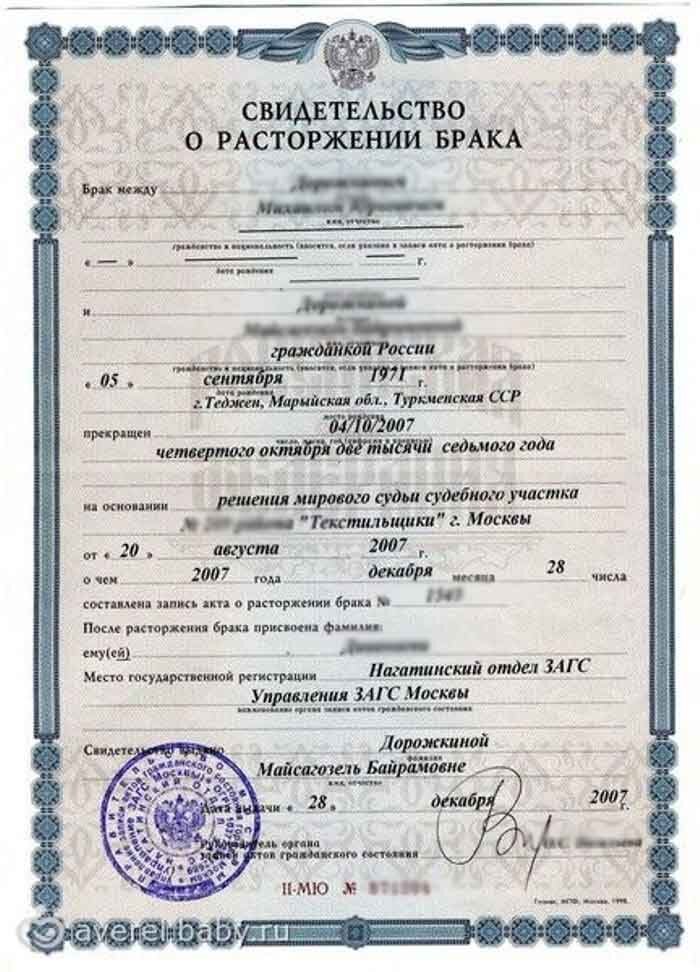 СВИДЕТЕЛЬСТВО
О РАСТОРЖЕНИИ БРАКА
Брак между
имя, отчество
гражданство и национальность (вносится, если указано в записи акта о расторжении брака)
« — » — — г.
дата рождения
и
гражданкой России
гражданство и национальность (вносится, если указано в записи акта о расторжении брака)
« 05 » сентября 1971 г.
г.Теджен, Марыйская обл., Туркменская ССР
место рождения
прекращен 04/10/2007
число, месяц, год (цифрами и прописью)
четвертого октября две тысячи седьмого года
на основании решения мирового судьи судебного участка
№ района "Текстильщики" г. Москвы
от « 20 » августа 2007 г.
о чем 2007 года декабря месяца 28 числа
составлена запись акта о расторжении брака №
После расторжения брака присвоена фамилия:
ему(ей)
Место государственной регистрации Нагатинский отдел ЗАГС
Управления ЗАГС Москвы
наименование органа записи актов гражданского состояния
Свидетельство выдано Дорожкиной
фамилия
Майсагозель Байрамовне
имя, отчество
Дата выдачи « 28 » декабря 2007 г.
Руководитель органа
записи актов гражданского состояния
II-МЮ №
Гознак, МПФ, Москва, 1998.
averel.baby.ru